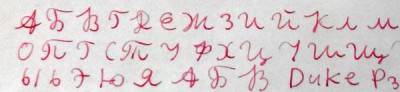 А Б В Г Д Є Ж З И Й К Л М
О П Г С Т У Ф Х Ц Ч Ш Щ
Ы Ь Э Ю Я А Б В Dike Рз